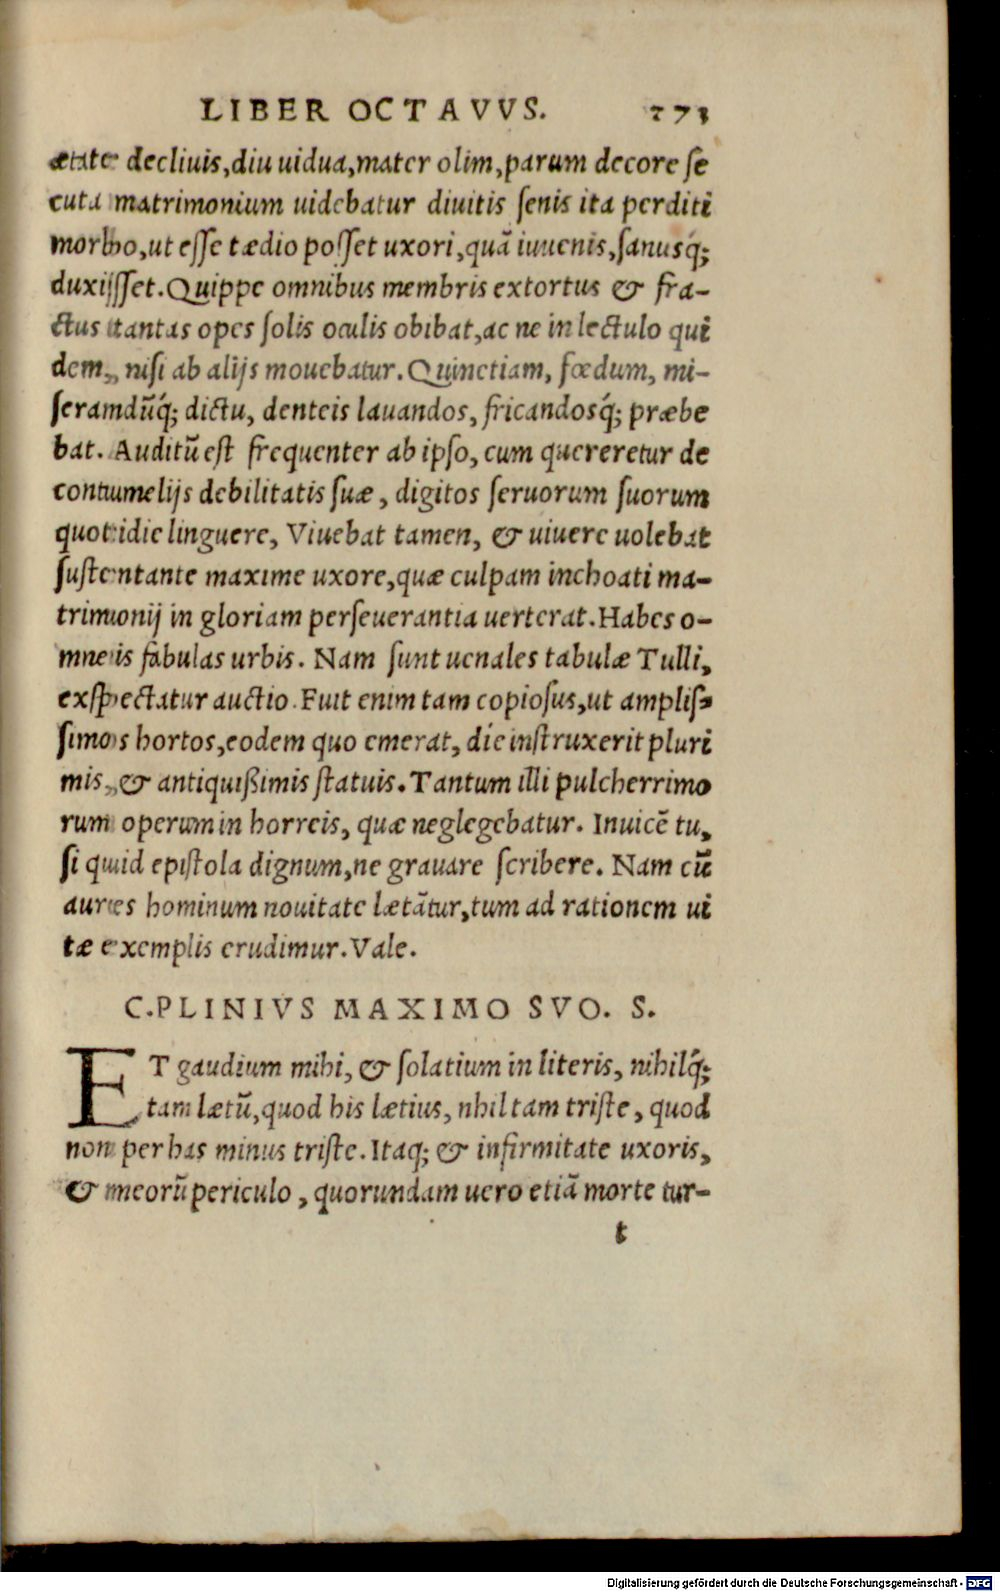 LIBER OCTAVVS. 273
ætate decliuis,diu uidua,mater olim,parum decore ſe
cuta matrimonium uidebatur diuitis ſenis ita perditi
morbo,ut eſſe tædio poſſet uxori,quā iuuenis,ſanusq́;
duxiſſet.Quippe omnibus membris extortus & fra-
ctus tantas opes ſolis oculis obibat,ac ne in lectulo qui
dem, niſi ab alijs mouebatur.Quinetiam, fœdum, mi-
ſerandūq́; dictu, denteis lauandos, fricandosq́; præbe
bat. Auditū eſt frequenter ab ipſo, cum quereretur de
contumelijs debilitatis ſuæ, digitos ſeruorum ſuorum
quotidie linguere, Viuebat tamen, & uiuere uolebat
ſuſtentante maxime uxore,quæ culpam inchoati ma-
trimonij in gloriam perſeuerantia uerterat.Habes o-
mneis fabulas urbis. Nam ſunt uenales tabulæ Tulli,
exſpectatur auctio.Fuit enim tam copioſus,ut ampliſ-
ſimos hortos,eodem quo emerat, die inſtruxerit pluri
mis, & antiquißimis ſtatuis.Tantum illi pulcherrimo
rum operum in horreis, quæ neglegebatur. Inuicē tu,
ſi quid epiſtola dignum,ne grauare ſcribere. Nam cū
aures hominum nouitate lætātur,tum ad rationem ui
tæ exemplis erudimur.Vale.
C.PLINIVS MAXIMO SVO. S.
ET gaudium mihi, & ſolatium in literis, nihilq́;
tam lætū,quod his lætius, nhil tam triſte, quod
non per has minus triſte.Itaq; & infirmitate uxoris,
& meorū periculo, quorundam uero etiā morte tur-
t
Digitalisierung gefördert durch die Deutsche Forschungsgemeinschaft - DFG